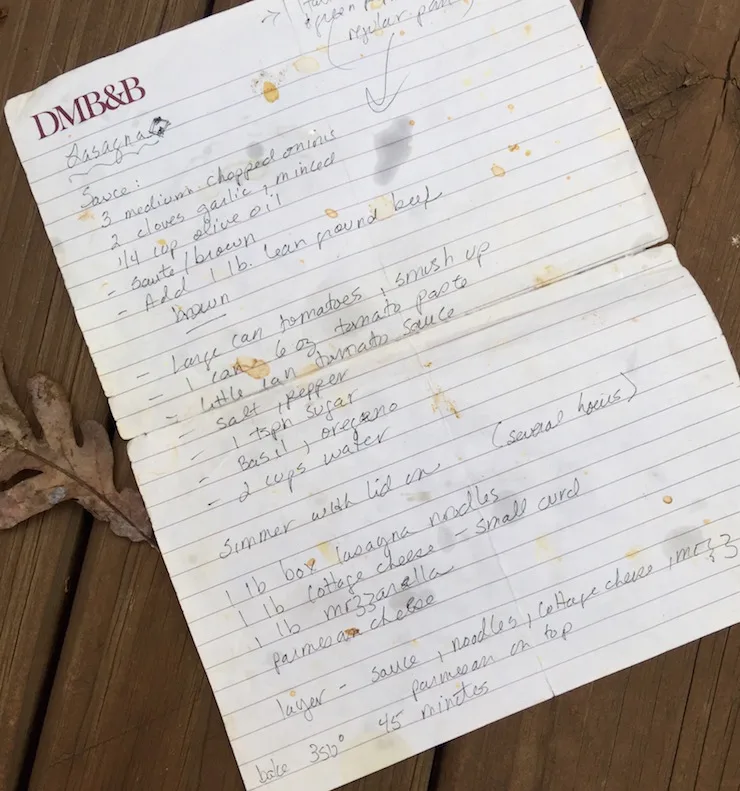 green
(regular pan)
DMB&B
Lasagna
Sauce:
3 medium chopped onins
2 cloves garlic, minced
1/4 cup olive oil
- Saute/brown
- Add 1 lb. lean ground beef
brown
- Large can tomatoes, smush up
- 1 can 6 oz tomato paste
- little can tomato sauce
- salt, pepper
- 1 tsph sugar
- Basil, oregeno
- 2 cups water
Simmer with lid on (several hours)
1 lb box lasagna noodles
1 lb cottage cheese - small curd
1 lb mozzarella
parmesan cheese
layer - sauce, noodles, cottage cheese, mozz
parmesan on top
bake 350° 45 minutes